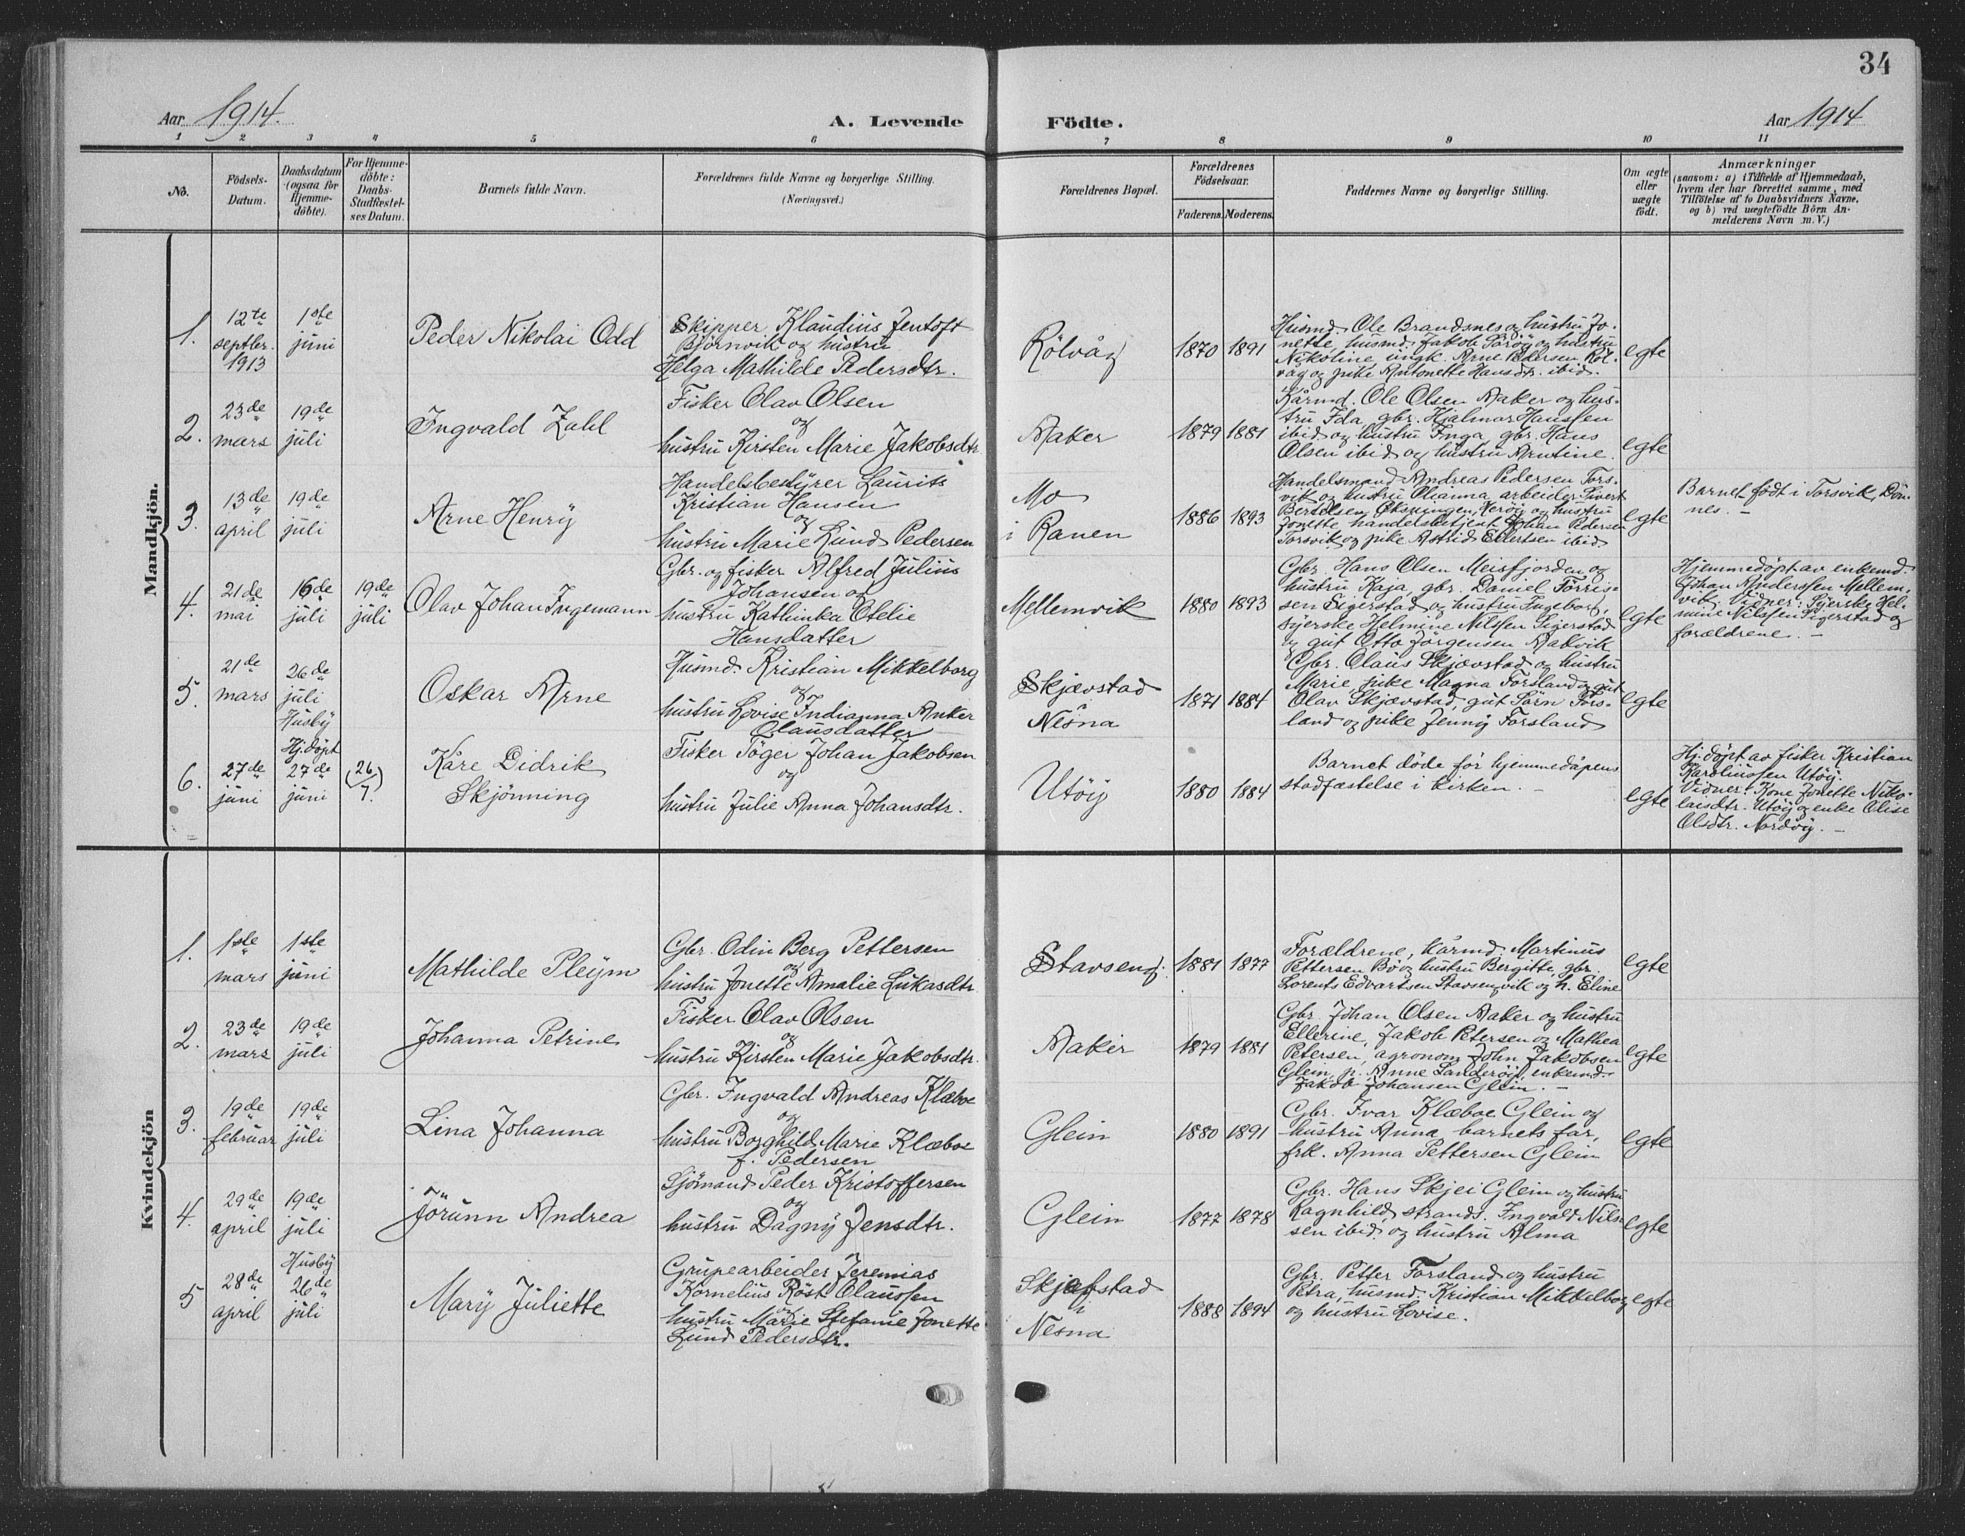 34
Aar 1914.
A. Levende
Födte.
Aar 1914
1 2 3 4 5 6 7 8 9 10 11
No.
Födsels-
Datum.
Daabsdatum
(ogsaa for
Hjemme-
döbte).
For Hjemme-
döbte:
Daabs-
Stadfæstel-
ses Datum.
Barnets fulde Navn.
Forældrenes fulde Navne og borgerlige Stilling.
(Næringsvei.)
Forældrenes Bopæl.
Forældrenes
Födselsaar.
Faderens. Moderens.
Faddernes Navne og borgerlige Stilling.
Om ægte
eller
uægte
födt.
Anmærkninger
(saasom: a) i Tilfælde af Hjemmedaab,
hvem der har forrettet samme, med
Tilföielse af to Daabsvidners Navne,
og b) ved uægtefödte Börn An-
melderens Navn m. V.)
Mandkjön.
1.
12te
septbr.
1913
1ste
juni
Peder Nikolai Odd
Skipper Klaudius Jentoft
Bjørnvik og hustru
Helga Mathilde Pedersdtr.
Rölvåg
1870
1891
Husmd. Ole Brandsnes og hustru Jo-
nette, husmd. Jakob Söröy og hustru
Nikoline, ungk. Arne Pedersen Röl-
våg og pike Antonette Hansdtr. ibid.
egte
2.
23de
mars
19de
juli
Ingvald Zahl
Fisker Olav Olsen
og
hustru Kirsten Marie Jakobsdtr.
Aaker
1879
1881
Kårmd. Ole Olsen Aaker og hus-
tru Ida, gbr. Hjalmar Hanssen
ibid og hustru Inga, gbr. Hans
Olsen ibid og hustru Arntine.
egte
3.
13de
april
19de
juli
Arne Henry
Handelsbestyrer Laurits
Kristian Hansen
og
hustru Marie Lund Pedersen
Mo
i Ranen
1886
1893
Handelsmand Andreas Pedersen Tors-
vik og hustru Olianna, arbeider Sivert
Bertelsen Öksningen, Herøy og hustru
Jonette, handelsbetjent Johan Pedersen
Torsvik og pike Astrid Ellertsen ibid
egte
Barnet født i Torsvik, Døn-
nes. —
4.
21de
mai
16de
juli
19de
juli
Olav Johan Ingemann
Gbr. og fisker Alfred Julius
Johansen og
hustru Kathinka Otelie
Hansdatter
Mellemvik
1880
1893
Gbr. Hans Olsen Meisfjorden og
hustru Kaja, gbr. Daniel Torris-
sen Sigerstad og hustru Ingeborg,
syerske Helmine Nilssen Sigerstad
og gut Otto Jörgensen Aakvik
egte
Hjemmedøpt av enkemd.
Johan Anderssen Mellem-
vik. Vidner: Syerske Hel-
mine Nilssen Sigerstad og
forældrene. —
5.
21de
mars
26de
juli
Husby
Oskar Arne
Husmd. Kristian Mikkelborg
og
hustru Lovise Indianna Anker
Olausdatter
Skjævstad
i
Nesna
1871
1884
Gbr. Olaus Skjævstad og hustru
Marie, pike Magna Forsland og gut
Olav Skjævstad, gut Sörn Fors-
land og pike Jenny Forsland
egte
6.
27de
juni
Hj.døpt
27de
juni
(26/7.)
Kåre Didrik
Skjönning
Fisker Töger Johan Jakobsen
og
hustru Julie Anna Johansdtr.
Utöy
1880
1884
Barnet døde før hjemmedåpens
stadfæstelse i kirken. —
egte
Hj.døpt av fisker Kristian
Karolinssen Utöy.
Vidner: Kone Jonette Niko-
laisdtr. Utöy og enke Olise
Olsdtr. Nordöy. —
Kvindekjön
1.
1ste
mars
1ste
juni
Mathilde Pleym
Gbr. Odin Berg Pettersen
og
hustru Jonette Amalie Lukasdtr.
Stavseng.
1881
1877
Forældrene, kårmd. Martinus
Pettersen Bö og hustru Bergitte, gbr.
Lorents Edvartsen Stavsengvik og h. Eline
egte
2.
23de
mars
19de
juli
Johanna Petrine
Fisker Olav Olsen
og
hustru Kirsten Marie Jakobsdtr.
Aaker
1879
1881
Gbr. Johan Olsen Aaker og hustru
Ellerine, Jakob Petersen og Mathea
Petersen, agronom John Jakobsen
Glein, p. Anne Sanderöy, enkemd.
Jakob Johansen Glein. —
egte
3.
19de
februar
19de
juli
Lina Johanna
Gbr. Ingvald Andreas Klæboe
og
hustru Borghild Marie Klæboe
f. Pedersen
Glein
1880
1891
Gbr. Ivar Klæboe Glein og
hustru Anna, barnets far,
frk. Anna Pettersen Glein
egte
4.
29de
april
19de
juli
Jörunn Andrea
Sjömand Peder Kristoffersen
og
hustru Dagny Jensdtr.
Glein
1877
1878
Gbr. Hans Skjei Glein og hustru
Ragnhild, strands. Ingvald Nils-
sen ibid, og hustru Alma
egte
5
28de
april
Husby
26de
juli
Mary Juliette
Grupearbeider Jeremias
Kornelius Röst Olaussen
og
hustru Marie Stefanie Jonette
Lund Pedersdtr.
Skjæfstad
i
Nesna
1888
1894
Gbr. Petter Forsland og hustru
Petra, husmd. Kristian Mikkelborg
og hustru Lovise.
egte